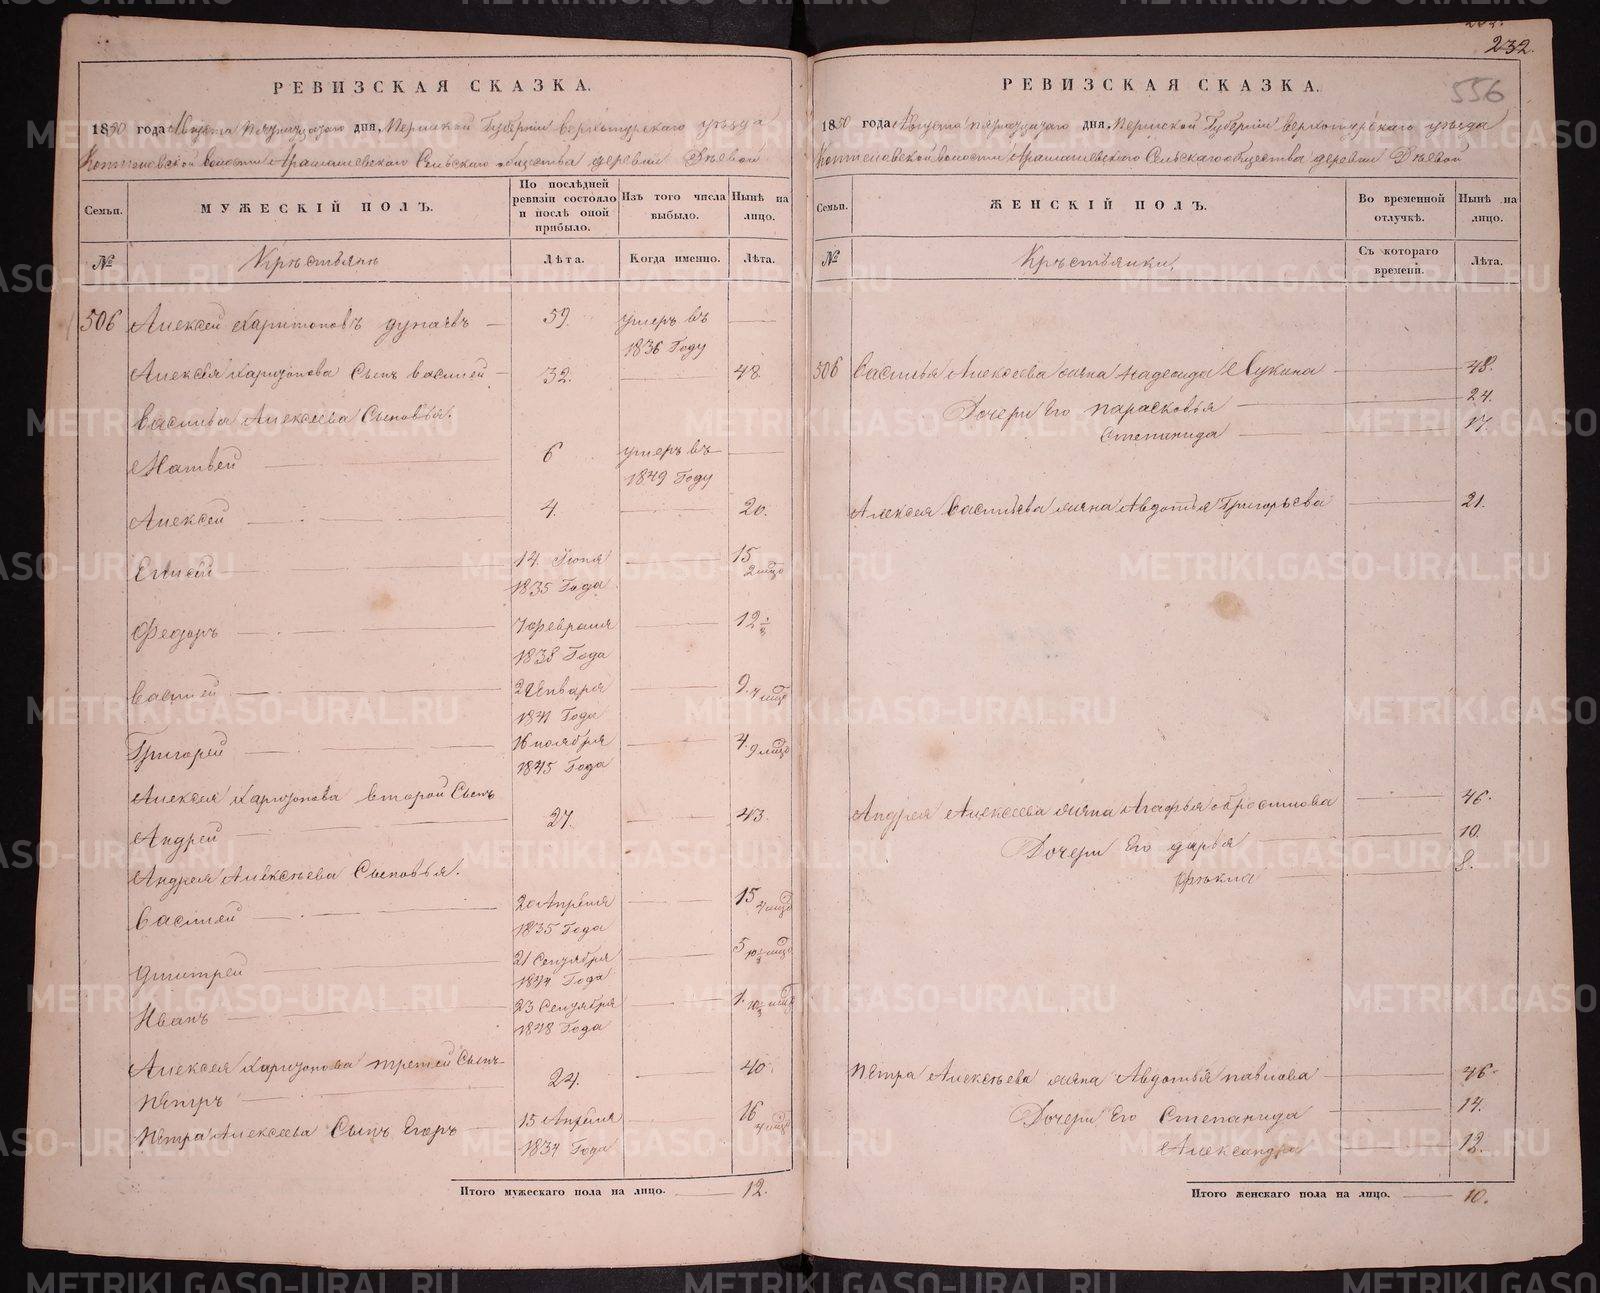 232.
556
РЕВИЗСКАЯ СКАЗКА.
1850 года Августа пятнадцатаго дня, Пермской Губернiи Верхотурскаго уѣзда
волости Арамашевскаго Сельскаго общества деревни
Семьи.
МУЖЕСКІЙ ПОЛЪ.
По послѣдней ревизіи состояло и послѣ оной прибыло.
Изъ того числа выбыло.
Нынѣ на лицо.
№
Крѣстьянѣ
Лѣта.
Когда именно.
Лѣта.
506 Алексей Харитоновъ Дунаевъ 59. умеръ въ
1836 Году
Алексѣя Харитонова Сынъ Василей 32. 48
Василья Алексеева Сыновья.
Матвей 6 умеръ въ
1849 Году
Алексей 4. 20.
Елисей 14 Іюня 15
1835 Года 2 мцо
Федоръ 7 Февраля 12 ½
1838 Года
Василей Января 9. 7 мцо
1841 Года
Григорей 16 ноября 4. 9 мцо
1845 Года
Алексея Харитонова второй Сынъ
Андрей 27. 43.
Андрея Алексѣева Сыновья.
Василей 20 Апреля 15 4 мцо
1835 Года
Дмитрей 21 Сентября 5 10½ мцо
1844 Года
Иванъ 23 Сентября 1. 10½ мцо
1848 Года
Алексея Харитонова третей Сынъ
Пѣтръ 24. 40
Пѣтра Алексеева Сынъ Егоръ 15 Апреля 16 4 мцо
1834 Года
Итого мужескаго пола на лицо. 12.
РЕВИЗСКАЯ СКАЗКА.
1850 года Августа пятнадцатаго дня, Пермской Губернiи Верхотурскаго уѣзда
волости Арамашевскаго Сельскаго общества деревни
Семьи.
ЖЕНСКІЙ ПОЛЪ.
Во временной отлучкѣ.
Нынѣ на лицо.
№
Крѣстьянки.
Съ котораго времени.
Лѣта.
506 Василья Алексеева жена Надежда Лукина 48.
Дочери Его Парасковья 24.
Степанида 17.
Алексея Васильева жена Авдотья Григорьева 21.
Андрея Алексеева жена Агафья 46.
Дочери Его Дарья 10.
Фѣкла 8.
Пѣтра Алексѣева жена Авдотья Павлова 46.
Дочери Его Степанида 14.
Александра 12.
Итого женскаго пола на лицо. 10.
METRIKI.GASO-URAL.RU